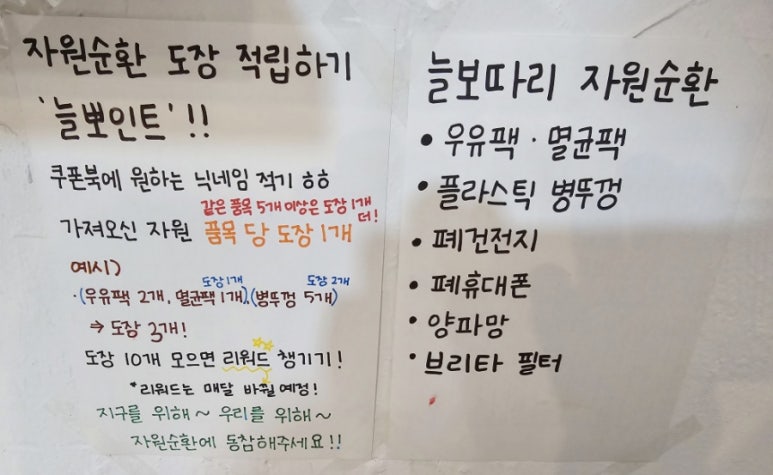 자원순환 도장 적립하기
'늘뽀인트'!!
쿠폰북에 원하는 닉네임 적기 ㅎㅎ
같은 품목 5개 이상은 도장 1개
더!
가져오신 자원 품목 당 도장 1개
예시)
도장 1개 도장 2개
·(우유팩 2개, 멸균팩 1개), (병뚜껑 5개)
⇒ 도장 3개!
도장 10개 모으면 리워드 챙기기!
*리워드는 매달 바뀔 예정!
지구를 위해~ 우리를 위해~
자원순환에 동참해주세요!!
늘보따리 자원순환
• 우유팩·멸균팩
• 플라스틱 병뚜껑
• 폐건전지
• 폐휴대폰
• 양파망
• 브리타 필터